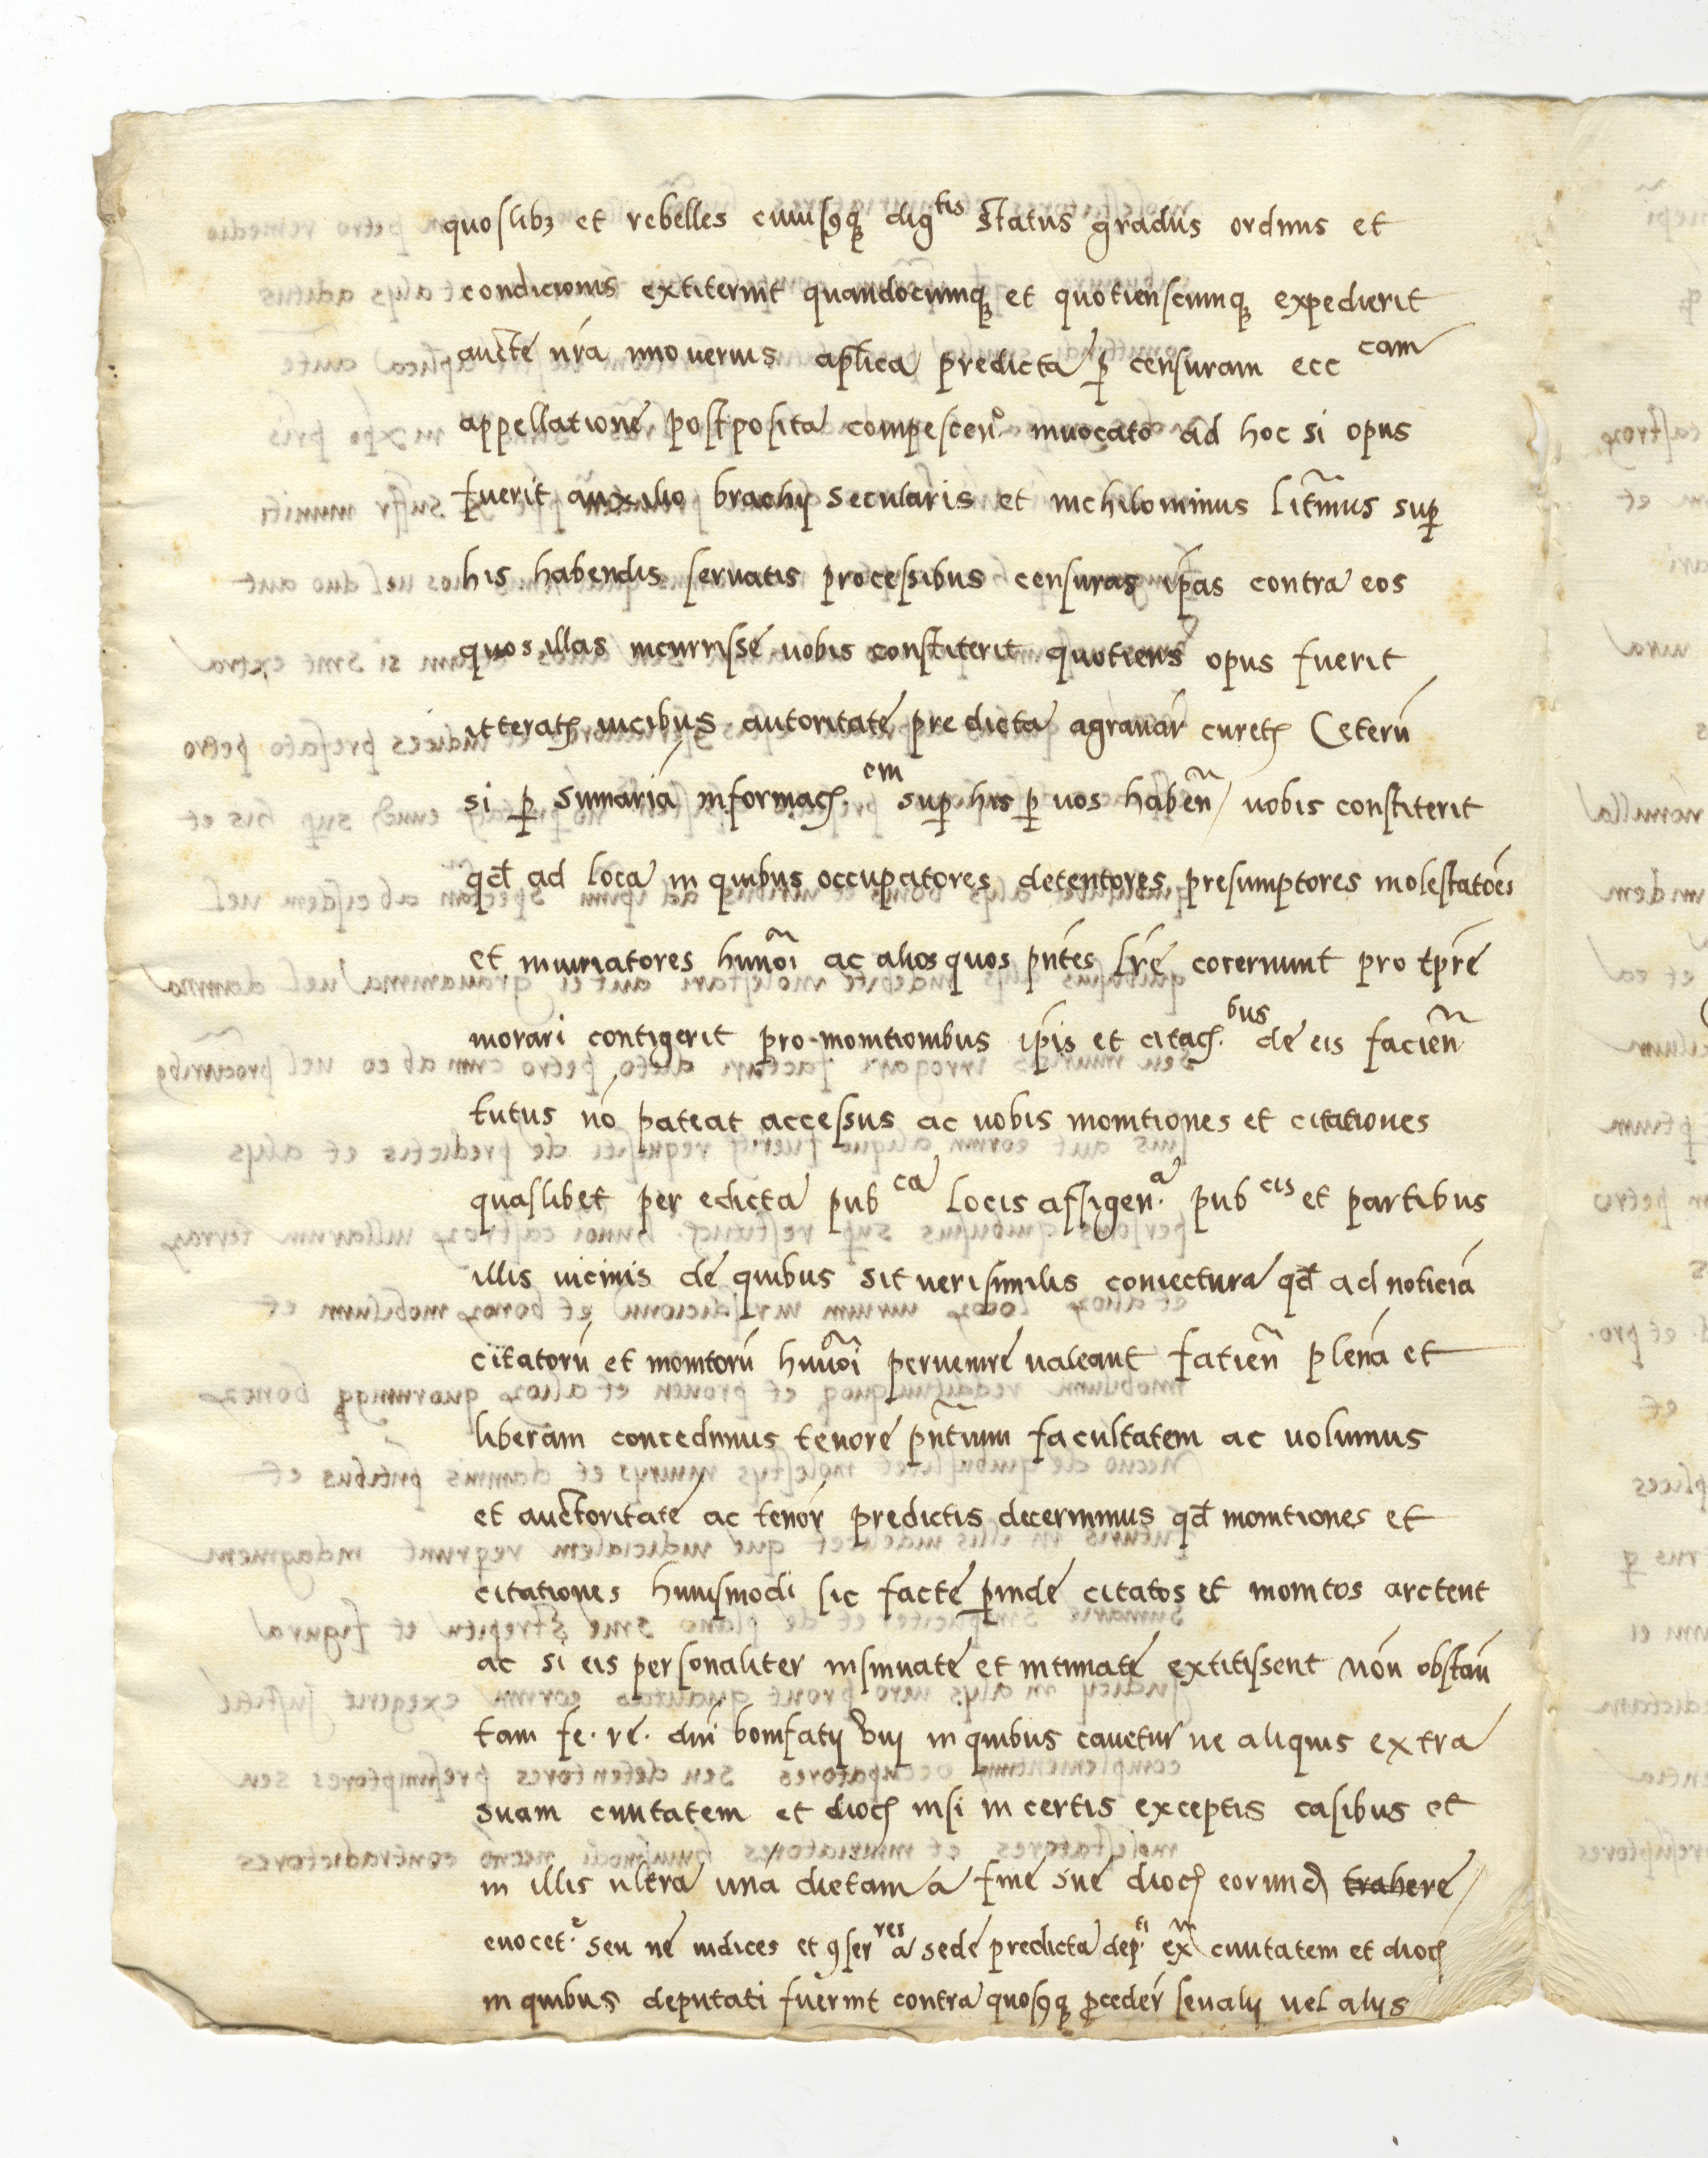 quoslibꝫ et rebelles cuiusꝯqꝫ dig^tis status gradus ordinis et
condicionis extiterint quandocumqꝫ et quotienscumqꝫ expedierit
aucte nr̃a immo uerius aplica predicta ꝑ censuram ecc^cam
appellatione postposita compescen^o. inuocato ad hoc si opus
fuerit auxilio brachij secularis et nichilominus litm̃us suꝑ
his habendis seruatis processibus censuras ip̃as contra eos
quos illas incurrisse uobis constiterit quotiens opus fuerit
itteratꝭ uicibus autoritate predicta agrauar̃ curetꝭ Ceterũ
si ꝑ sumariã informaçꝭ.^em suꝑ his ꝑ uos habeñ / uobis constiterit
qđ ad loca in quibus occupatores detentores presumptores molestatões
et iniuriatores huiuõi ac alios quos pñtes lr̃e cõcernunt pro tp̃re
morari contigerit pro monitionibus ip̃is et citaçꝭ.^bus de eis facieñ
tutus nõ pateat accessus ac uobis monitiones et citationes
quaslibet per edicta pub^ca locis affigen.^a pub^cis et partibus
illis uicinis de quibus sit uerisimilis coniectura qđ ad noticiã
citatorũ et monitorũ huiuõi peruenire ualeant fatieñ plenã et
liberam concedimus tenore pñtium facultatem ac uolumus
et auctoritate ac tenor̃ predictis decernimus qđ monitiones et
citationes huiusmodi sic facte ꝑinde citatos et monitos arctent
ac si eis personaliter insinuate et intimate extitissent non obstañ
tam fe. re. dñi bonifatij viij in quibus cauetur ne aliquis extra
suam ciuitatem et dioçꝭ nisi in certis exceptis casibus et
in illis ultra unã dietam a fine sue dioçꝭ eorundꝭ trahere /
euocet.^r seu ne iudices et ꝯser^res a sede predicta dep.^ti ex̃ ciuitatem et dioçꝭ
in quibus deputati fuerint contra quosꝯqꝫ ꝓceder̃ seu alij uel alijs